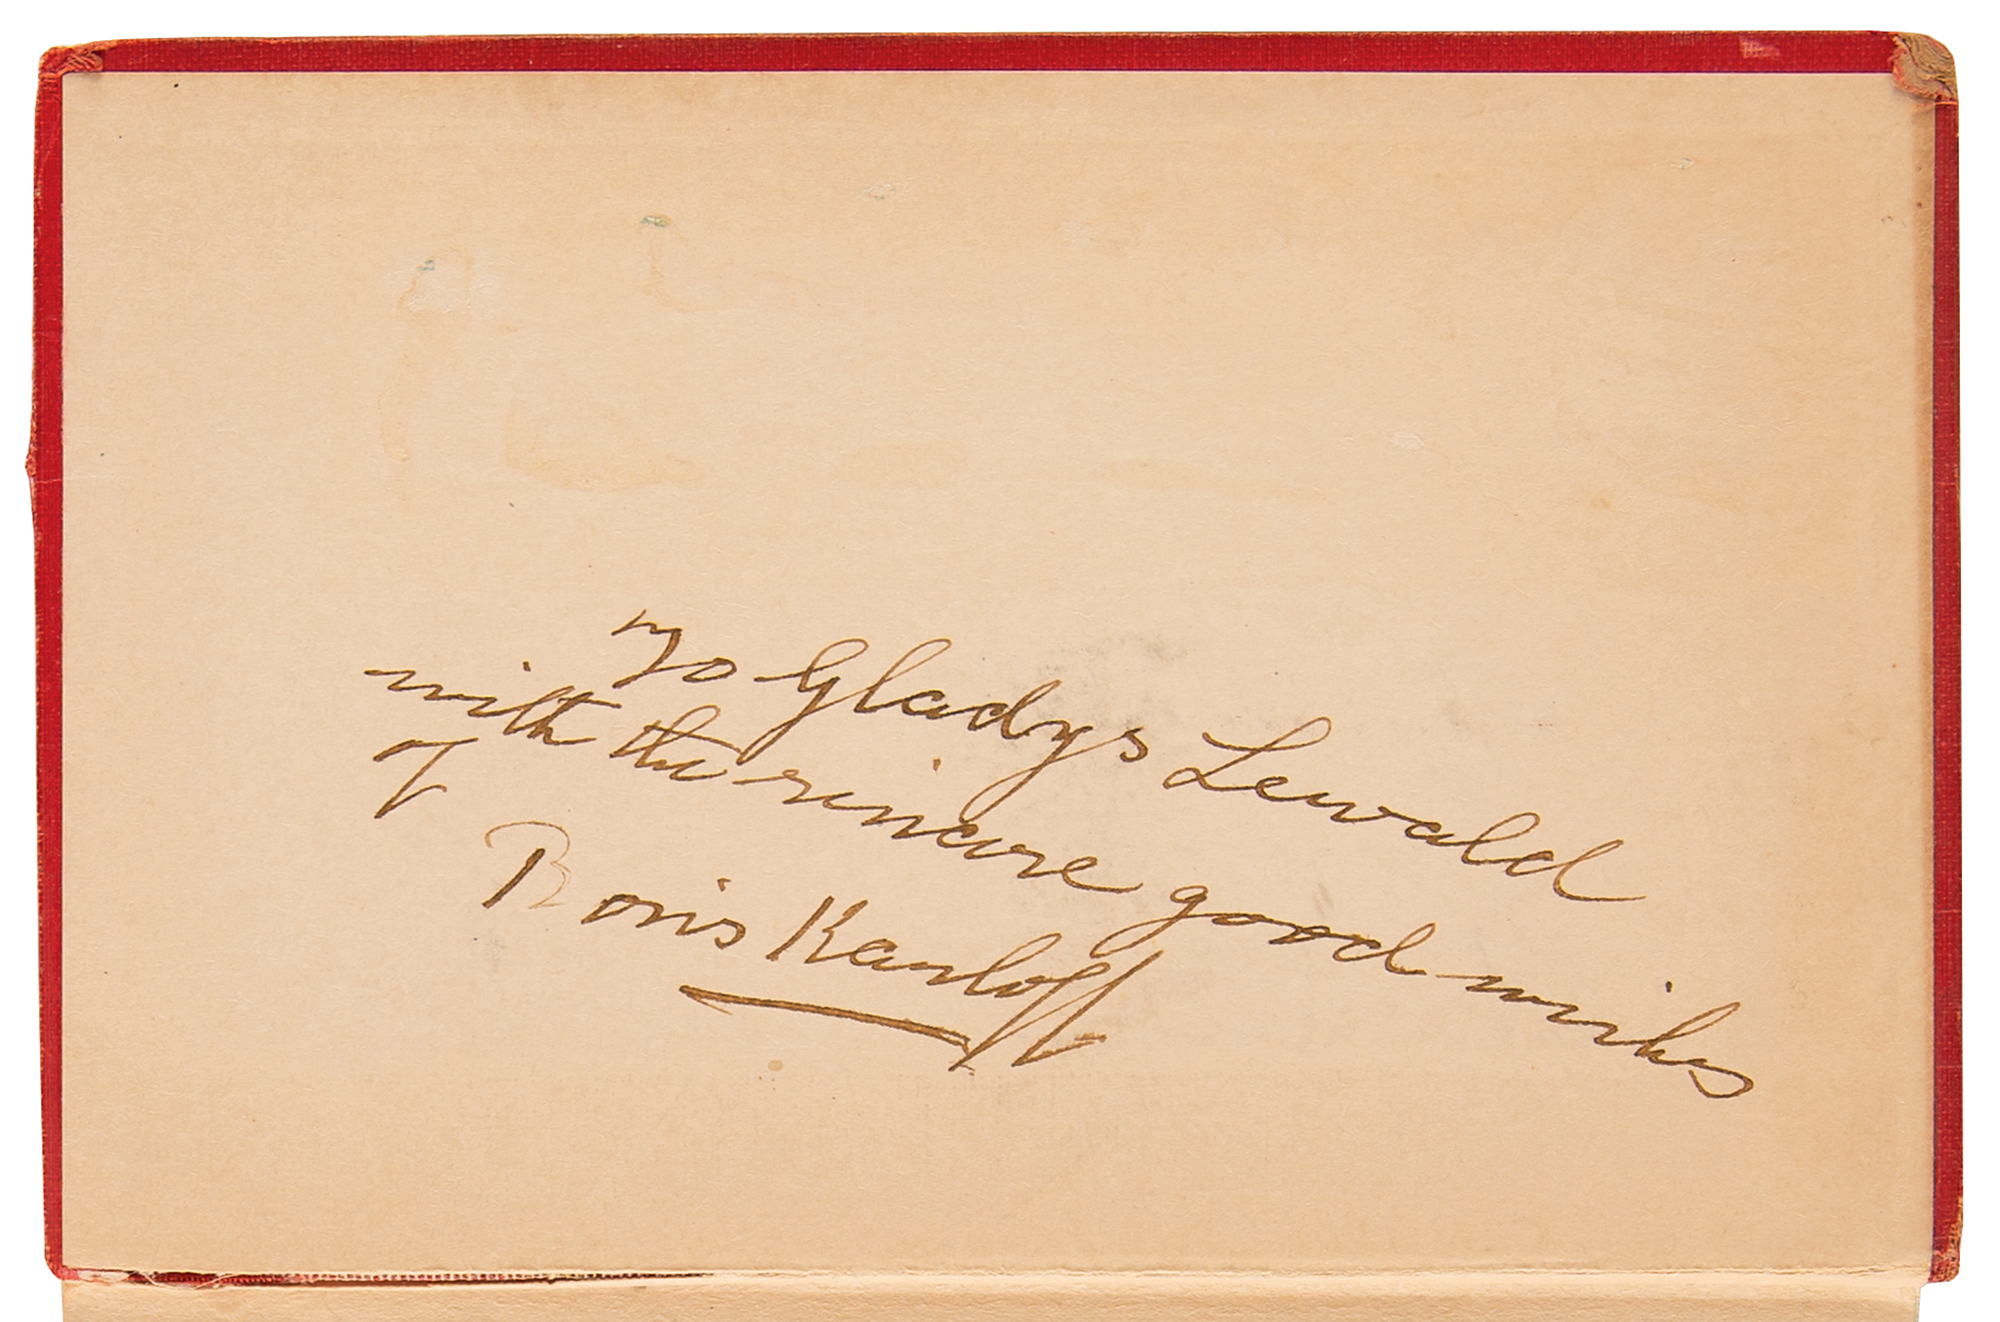 To Gladys Lewald
with the sincere good wishes
of
Boris Karloff